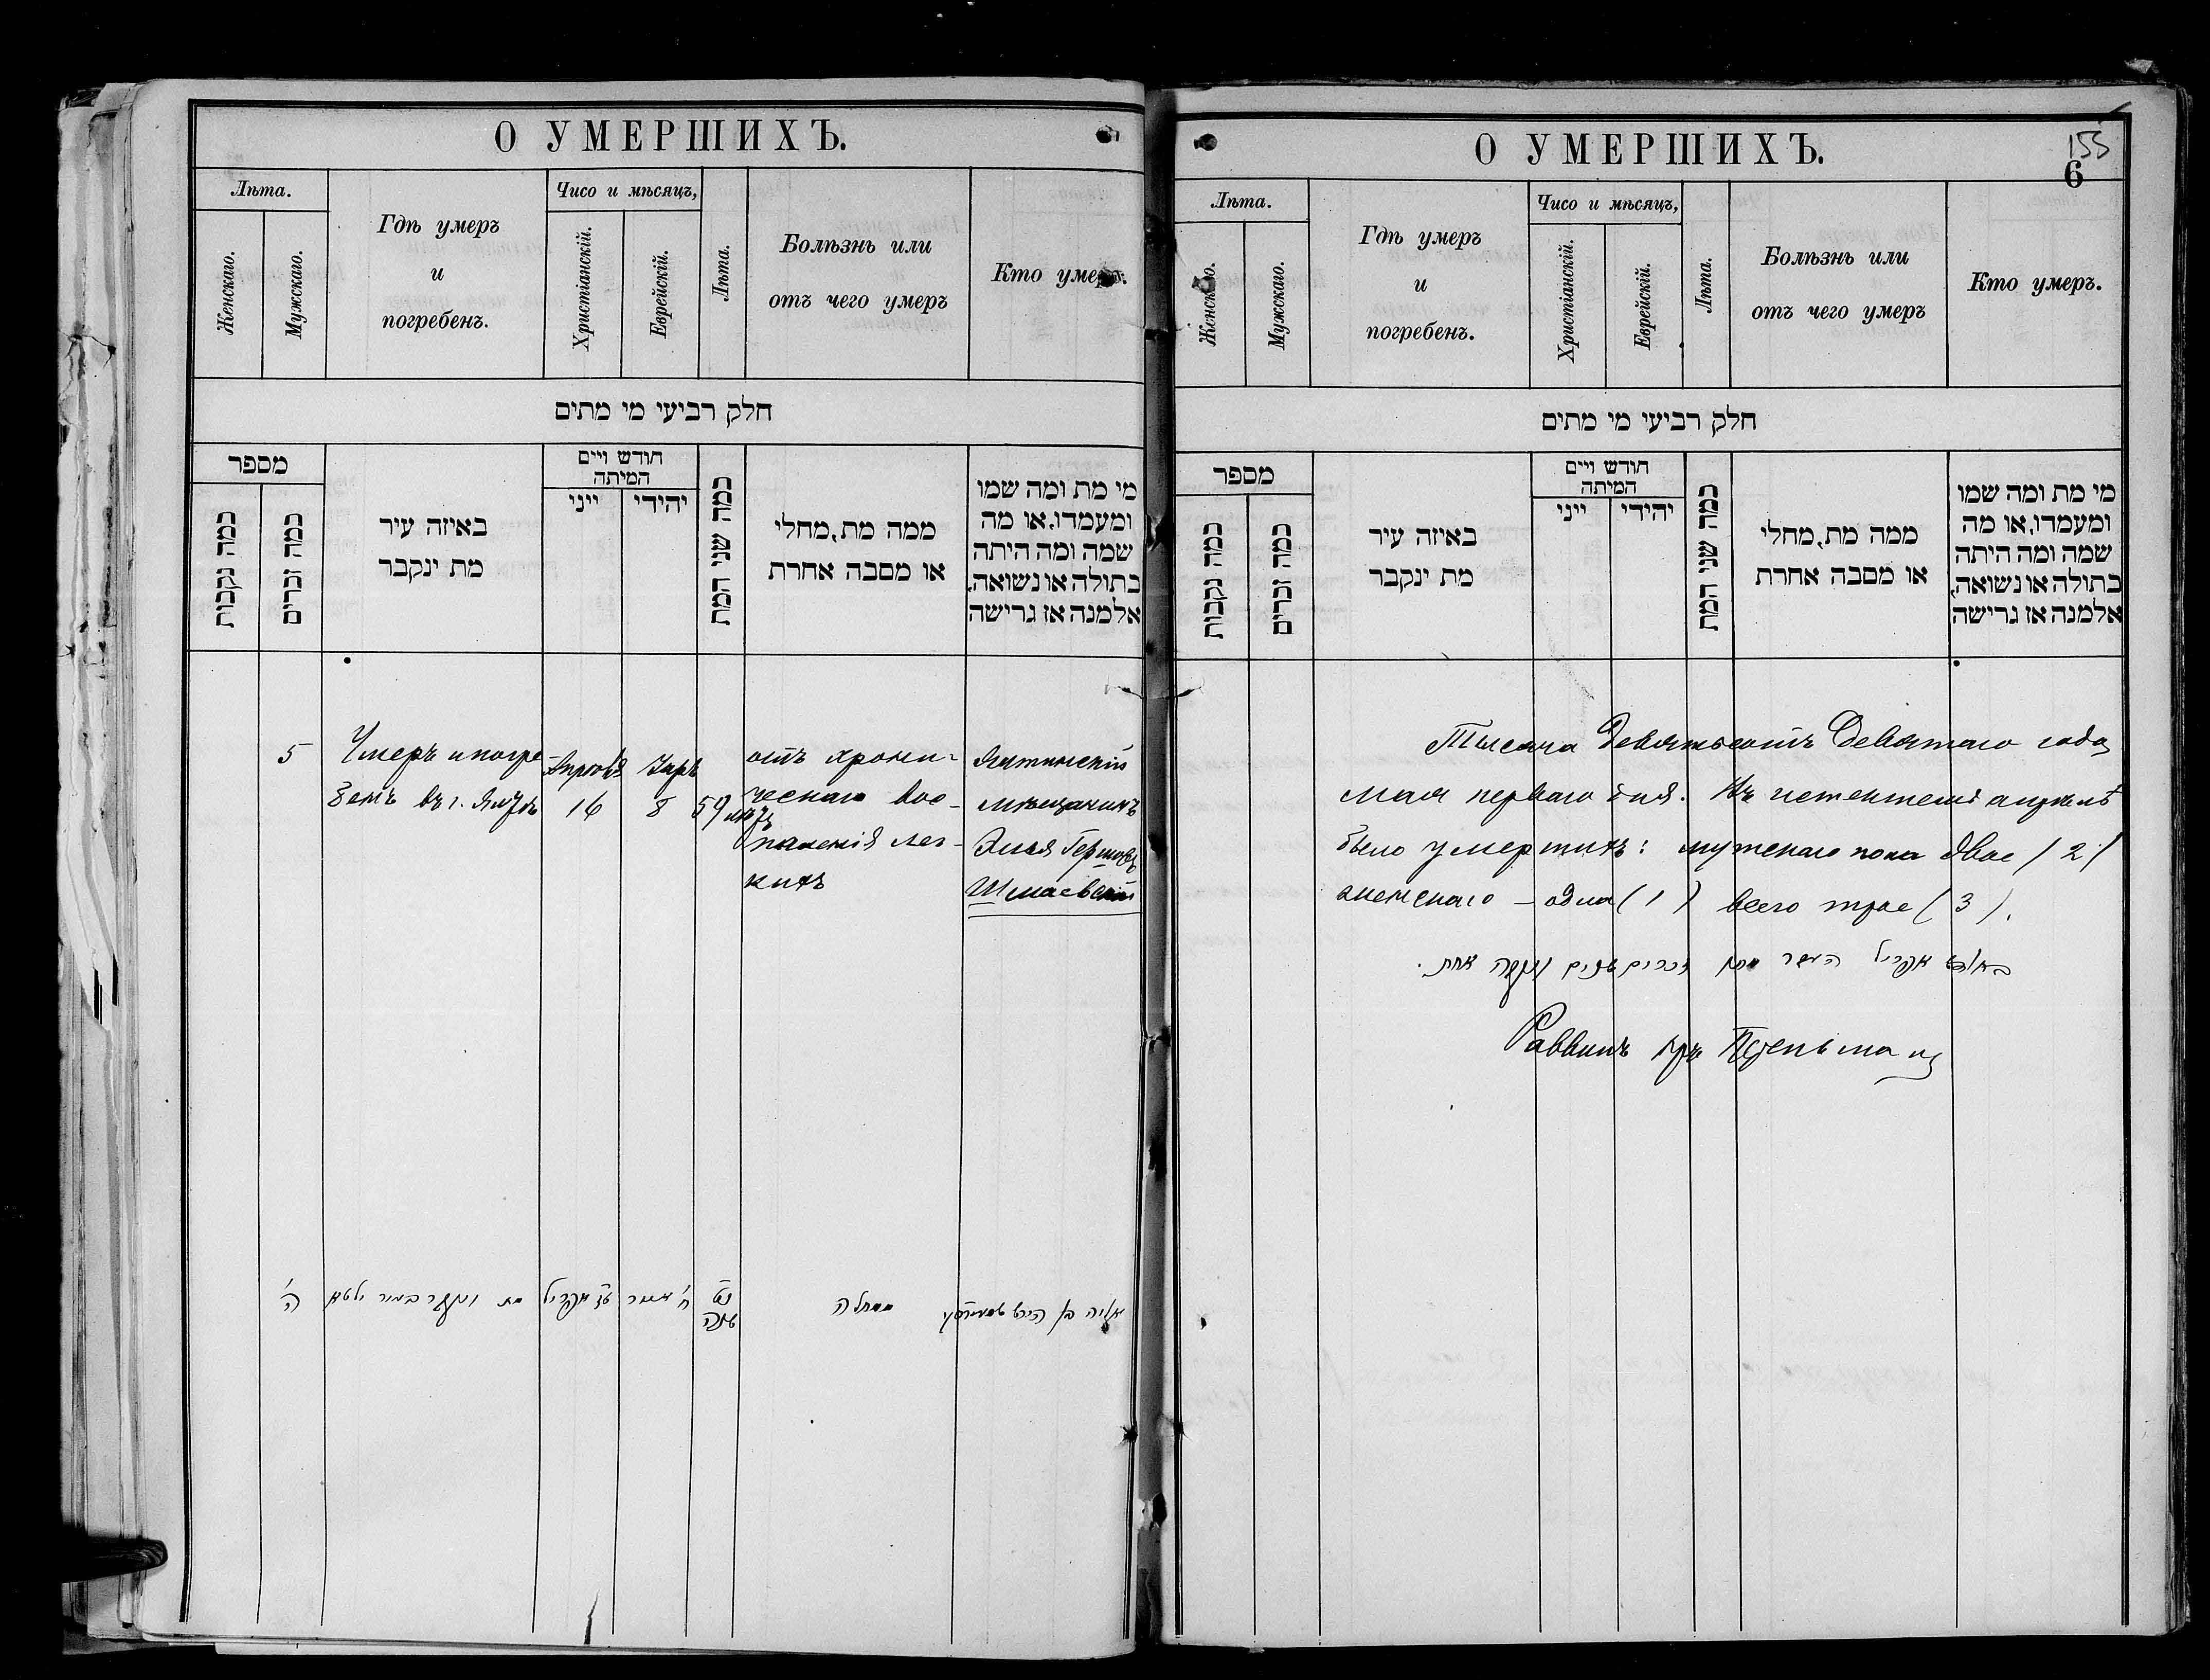 О УМЕРШИХЪ.
Лѣта.
Женскаго.
Мужскаго.
Гдѣ умеръ
и
погребенъ.
Чисо и мѣсяцъ,
Христіанскій.
Еврейскій.
Лѣта.
Болѣзнь или
отъ чего умеръ
Кто умеръ.
חלק רביעי מי מתים
מספר
כמה נקבות
כמה זכרים
באיזה עיר
מת ינקבר
חודש ויים
המיתה
ייני
יהידי
כמה שני המת
ממה מת, מחלי
או מסבה אחרת
מי מת ומה שמו
ומעמדו, או מה
שמה ומה היתה
בתולה או נשואה,
אלמנה אז גרישה
5
Умеръ и погре-
бенъ въ г. Ялтѣ
Апрѣля
16
Іяръ
8
59 лѣтъ
отъ хрони-
ческаго вос-
паленія лег-
кихъ
Ялтинскій
мѣщанинъ
Элья Гершовъ
Шмаевскій
ה'
מת ונקבר בעיר יאלטא
טז אפריל
ח' אייר
נט
שנה
ממחלה
אליה בן הירש
О УМЕРШИХЪ.
155
6
Лѣта.
Женскаго.
Мужскаго.
Гдѣ умеръ
и
погребенъ.
Чисо и мѣсяцъ,
Христіанскій.
Еврейскій.
Лѣта.
Болѣзнь или
отъ чего умеръ
Кто умеръ.
חלק רביעי מי מתים
מספר
כמה נקבות
כמה זכרים
באיזה עיר
מת ינקבר
חודש ויים
המיתה
ייני
יהידי
כמה שני המת
ממה מת, מחלי
או מסבה אחרת
מי מת ומה שמו
ומעמדו, או מה
שמה ומה היתה
בתולה או נשואה,
אלמנה אז גרישה
Тысяча девятьсотъ девятаго года
мая перваго дня. Въ истекшемъ апрѣлѣ
было умершихъ: мужскаго пола двое (2)
женскаго – одна (1) всего трое (3).
בחודש אפריל העבר מתו זכרים שנים ונקבה אחת.
Раввинъ